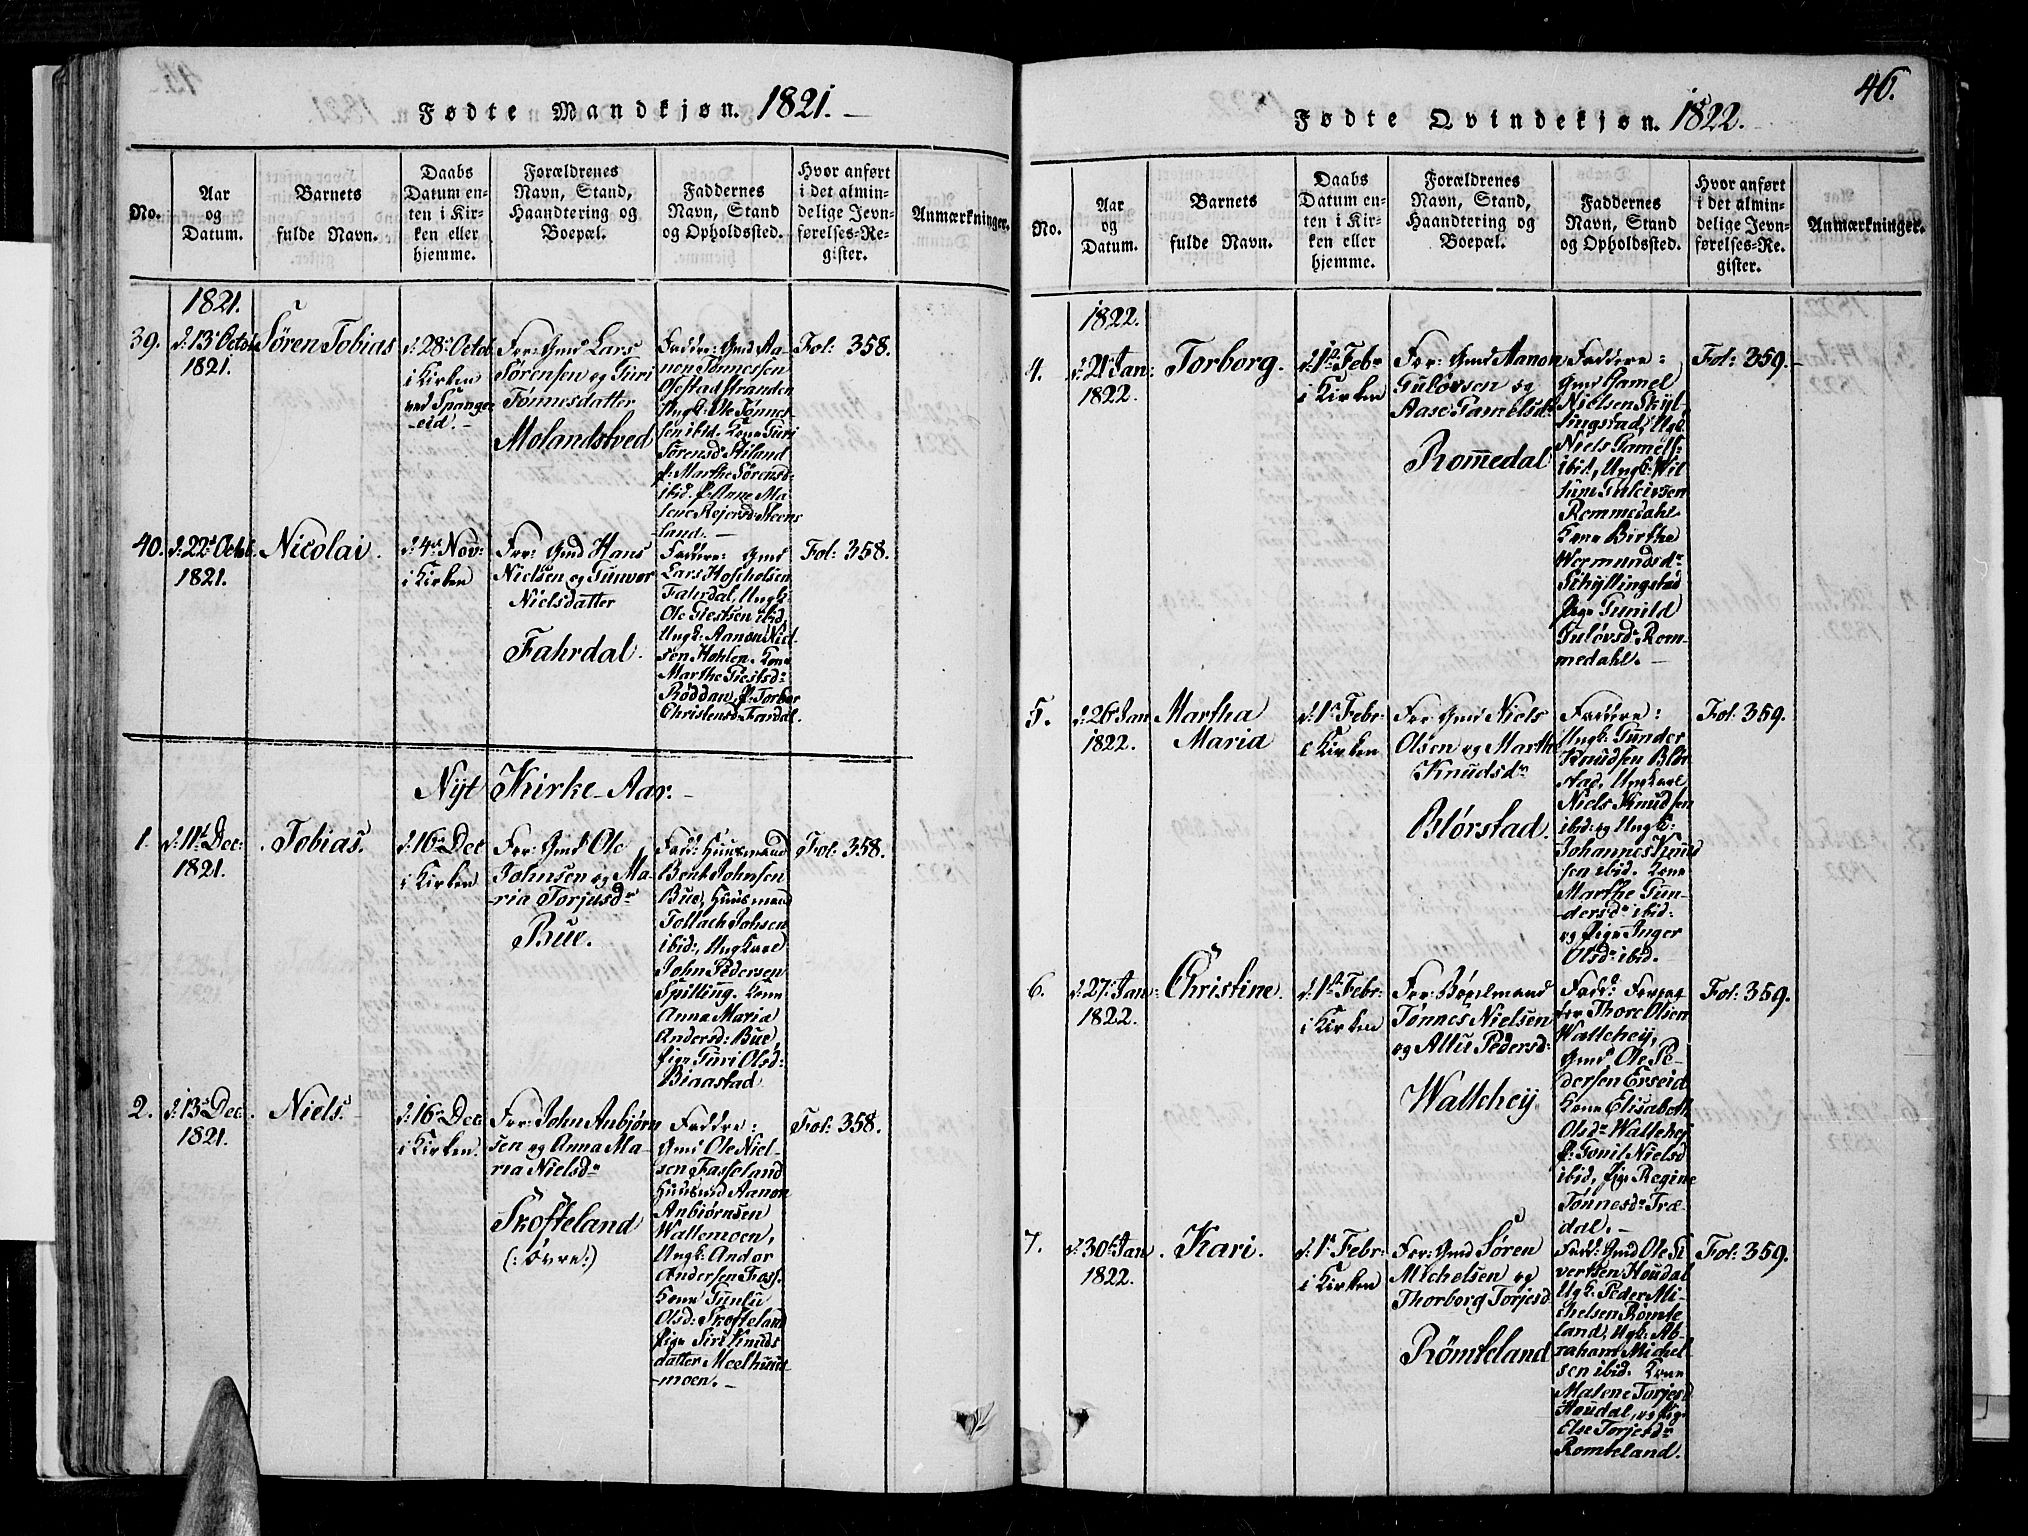 Fødte Mandkjøn. 1821.
No.
Aar
og
Datum.
Barnets
fulde Navn.
Daabs
Datum en-
ten i Kir-
ken eller
hjemme.
Forældrenes
Navn, Stand,
Haandtering og
Boepæl.
Faddernes
Navn, Stand
og Opholdssted.
Hvor anført
i det almin-
delige Jevn-
førelses-Re-
gister.
Anmærkninger.
1821.
39.
d: 13 Octob
1821.
Søren Tobias
d: 28 Octob
i Kirken
ved Spange
-eid.-
For: Gmd Lars
Sørensen og Guri
Tønnesdatter
Molandsved
Faddre: Gmd Aa-
nen Tønnesen
Øfstad Stranden
Ungk: Ole Tønne-
sen ibid. Kone Guri
Sørensd: Stiland
P: Marthe Sørensd:
ibid. P: Anne Ma-
lene Rejersd: Steens
land.-
Fol: 358.
40.
d: 22 Octob.
1821.
Nicolai.
d: 4 Nov:
i Kirken
For: Gmd Hans
Nielsen og Gunvor
Nielsdatter
Fahrdal.
Faddre: Gmd
Lars
Fahrdal, Ungk:
Ole Giertsen ibid,
Ungk: Aanon Niel
sen Hohlen. Kone
Marthe Giertsd:
Røddan, P: Torbor
Christensd: Fardal.
Fol: 358.
Nyt Kirke-Aar.-
1.
d: 11 Dec:
1821.
Tobias.
d: 16 Dec
i Kirken
For: Gmd Ole
Johnsen og Ma-
-ria Torjusd
Bue.
Fadd: Huusmand
Bent Johnsen
Bue, Huusmand
Tollach Johsen
ibid:, Ungkarl
John Pedersen
Spilling. Kone
Anna Maria
Andersd: Bue,
Pige Guri Olsd:
Biaastad
Fol: 358.
2.
d: 13 Dec.
1821.
Niels.
d: 16 Dec
i Kirken.
For: John Anbjørn
sen og Anna Ma-
ria Nielsd
Skofteland
(: øvre :)
Faddre:
Gmd Ole Niel-
sen Fasseland
Huusmd Aanon
Anbiørnsen
Wallemoen,
Ungk: Andor
Andersen Foss.
Kone Gunlu
Olsd: Skofteland
Pige Siri Knuds
datter Meelhuus
-moen.-
Fol: 358.
46.
Fødte Qvindekjøn. 1822.
No.
Aar
og
Datum.
Barnets
fulde Navn.
Daabs
Datum en-
ten i Kir-
ken eller
hjemme.
Forældrenes
Navn, Stand,
Haandtering og
Boepæl.
Faddernes
Navn, Stand
og Opholdssted.
Hvor anført
i det almin-
delige Jevn-
førelses-Re-
gister.
Anmærkninger.
1822.
4.
d: 21 Jan:
1822.
Torborg.
d: 1 Febr
i Kirken
For: Gmd Aanon
Guløvsen og
Aase Gamelsd
Rommedal
Faddere:
Gmd Gamel
Nielsen Skyl-
lingstad, Ungk:
Niels Gamels:
ibid, Ungk:
Rommedahl
Kone Birthe
Wermundsd
Schyllingstad
Pige Gunild
Guløvsd: Rom-
medahl.-
Fol: 359.
5.
d: 26 Jan
1822.
Martha
Maria
d: 1 Febr:
i Kirken
For: Gmd Niels
Olsen og Marthe
Knudsd
Blørstad.
Faddere:
Ungk: Gunder
Knudsen Blør
stad, Ungkarl
Niels Knudsen
ibid: og Ungk:
Johannes Knud
sen ibid. Kone
Marthe Gun-
-dersd ibid:
og Pige Inger
Olsd: ibid.
Fol: 359.
6.
d: 27 Jan:
1822.
Christine.
d: 1 Febr:
i Kirken
For: Bøxelmand
Tønnes Nielsen
og Allu Pedersd:
Wallehey
Fadd: Forpag
ter Thore Olsen
Wallehey,
Gmd Ole Pe-
dersen Erseid
Kone Elisabeth
Olsd Wallehey
P: Gonil Nielsd
ibid, Pige Regine
Tønnesd Træ-
dal.-
Fol: 359.
7.
d: 30 Jan
1822.
Kari.
d: 1 Febr:
i Kirken
For: Gmd Søren
Michelsen og
Thorborg Torjesd
Rømteland
Fadd: Gmd Ole Si
vertsen Houdal
Ugk: Peder Mi-
chelsen Rømte
land, Ugk: Ab-
raham Michel
sen ibid. Kone
Malene Torjesd
Houdal, og Pige
Else Torjesd
Romteland.
Fol: 359.